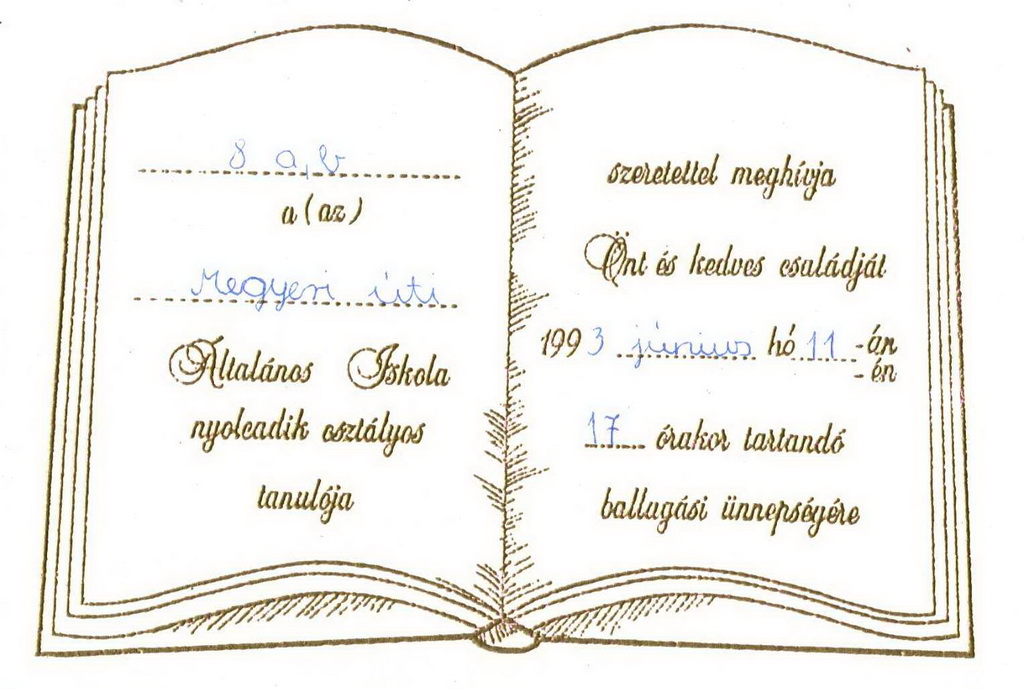 8 a, b
a (az)
Megyeri úti
Általános Iskola
nyolcadik osztályos
tanulója
szeretettel meghívja
Önt és kedves családját
1993 június hó 11 -án
-én
17 órakor tartandó
ballagási ünnepségére